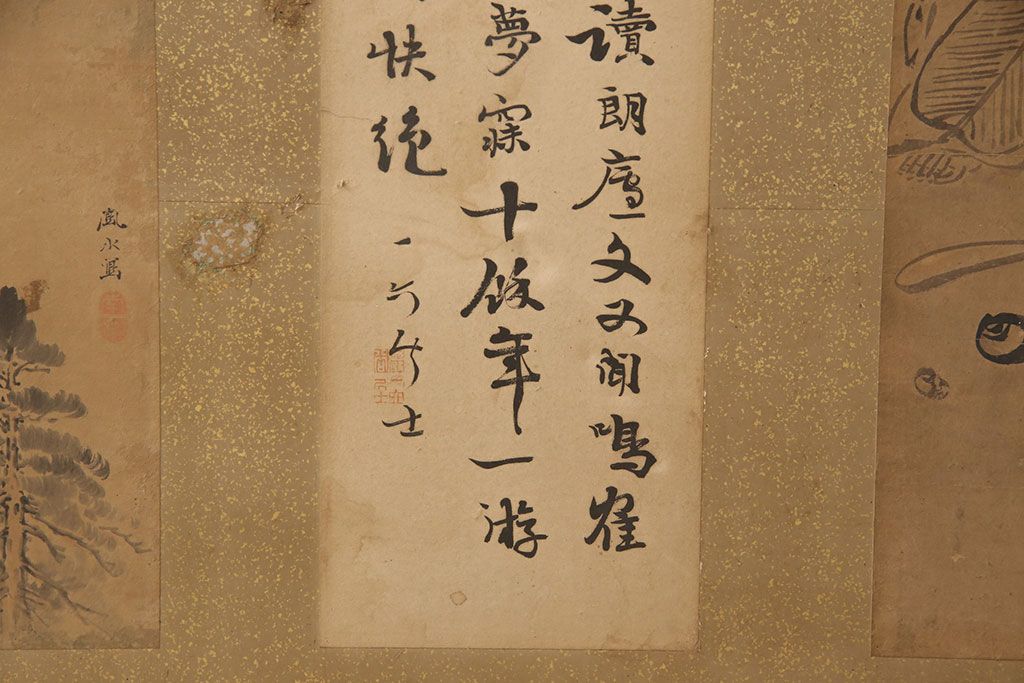 讀朗廬文又聞鳴寉
夢寐十餘年一游
快絶
一六居士
嵐水寫